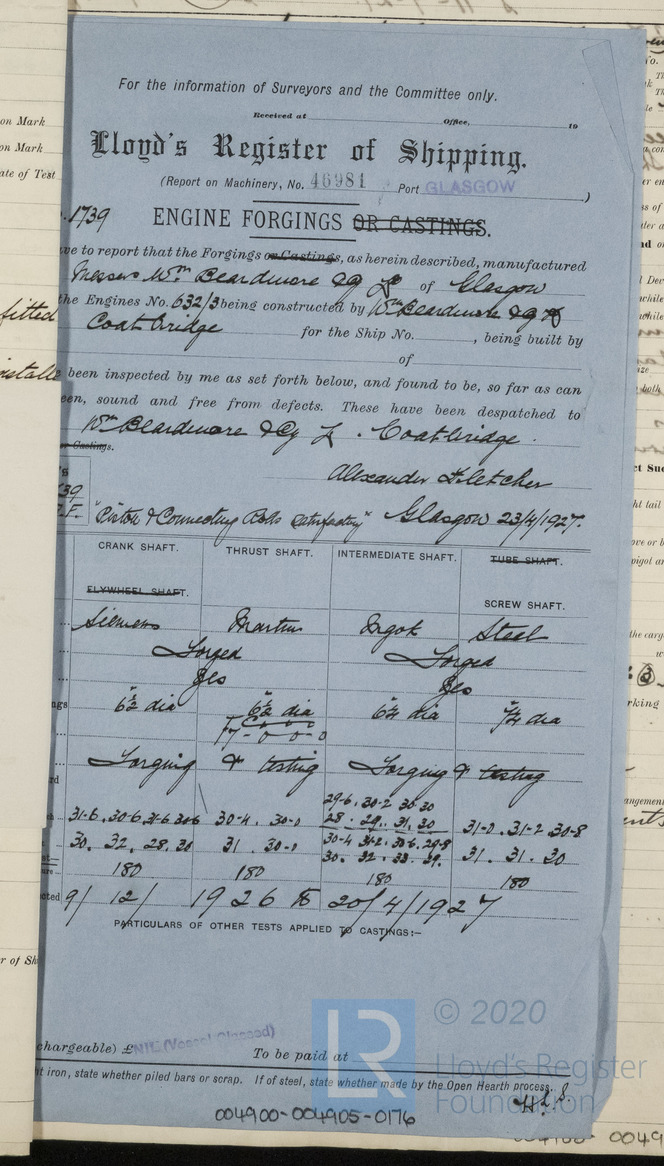 For the information of Surveyors and the Committee only.
Received at Office, 19
Lloyd's Register of Shipping.
(Report on Machinery, No. 46981 Port GLASGOW )
1739 ENGINE FORGINGS OR CASTINGS.
ve to report that the Forgings or Castings, as herein described, manufactured
Messrs Wm Beardmore & Co Ld of Glasgow
the Engines No. 632/3 being constructed by Wm Beardmore & Co Ld
Coatbridge for the Ship No. , being built by
of
been inspected by me as set forth below, and found to be, so far as can
een, sound and free from defects. These have been despatched to
Wm Beardmore & Co Ld. Coatbridge.
or Castings.
Alexander Fletcher
"Piston & Connecting Rods satisfactory" Glasgow 23/4/1927.
CRANK SHAFT. THRUST SHAFT. INTERMEDIATE SHAFT. TUBE SHAFT.
FLYWHEEL SHAFT. SCREW SHAFT.
Siemens Martin Ingot Steel
Forged Forged
Yes Yes
6½" dia 6½" dia 6¼" dia 7¼" dia
Forging & testing Forging & testing
29-6. 30-2 30-30
31-6. 30-6. 31-6 30-6 30-4. 30-0 28. 29. 31. 30 31-0. 31-2. 30-8
30. 32. 28. 30 31. 30-0 30-4 31-2. 30-6. 29-8
30. 32. 33. 29. 31. 31. 30
180 180 180 180
cted 9/12/1926 to 20/4/1927
PARTICULARS OF OTHER TESTS APPLIED TO CASTINGS:—
chargeable) £ NIL (Vessel Classed)
To be paid at
t iron, state whether piled bars or scrap. If of steel, state whether made by the Open Hearth process.
004900-004905-0176
LR © 2020
Lloyd's Register
Foundation
on Mark
on Mark
ate of Test
fitted
installe